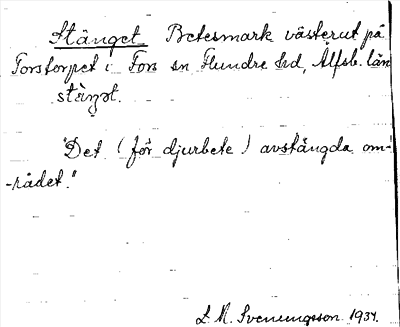 Stänget Betesmark västerut på
Forstorpet i Fors sn Flundre hd, Älfsb. län
stäŋət.
"Det (för djurbete) avstängda om-
-rådet."
L. M. Svenungsson 1937.